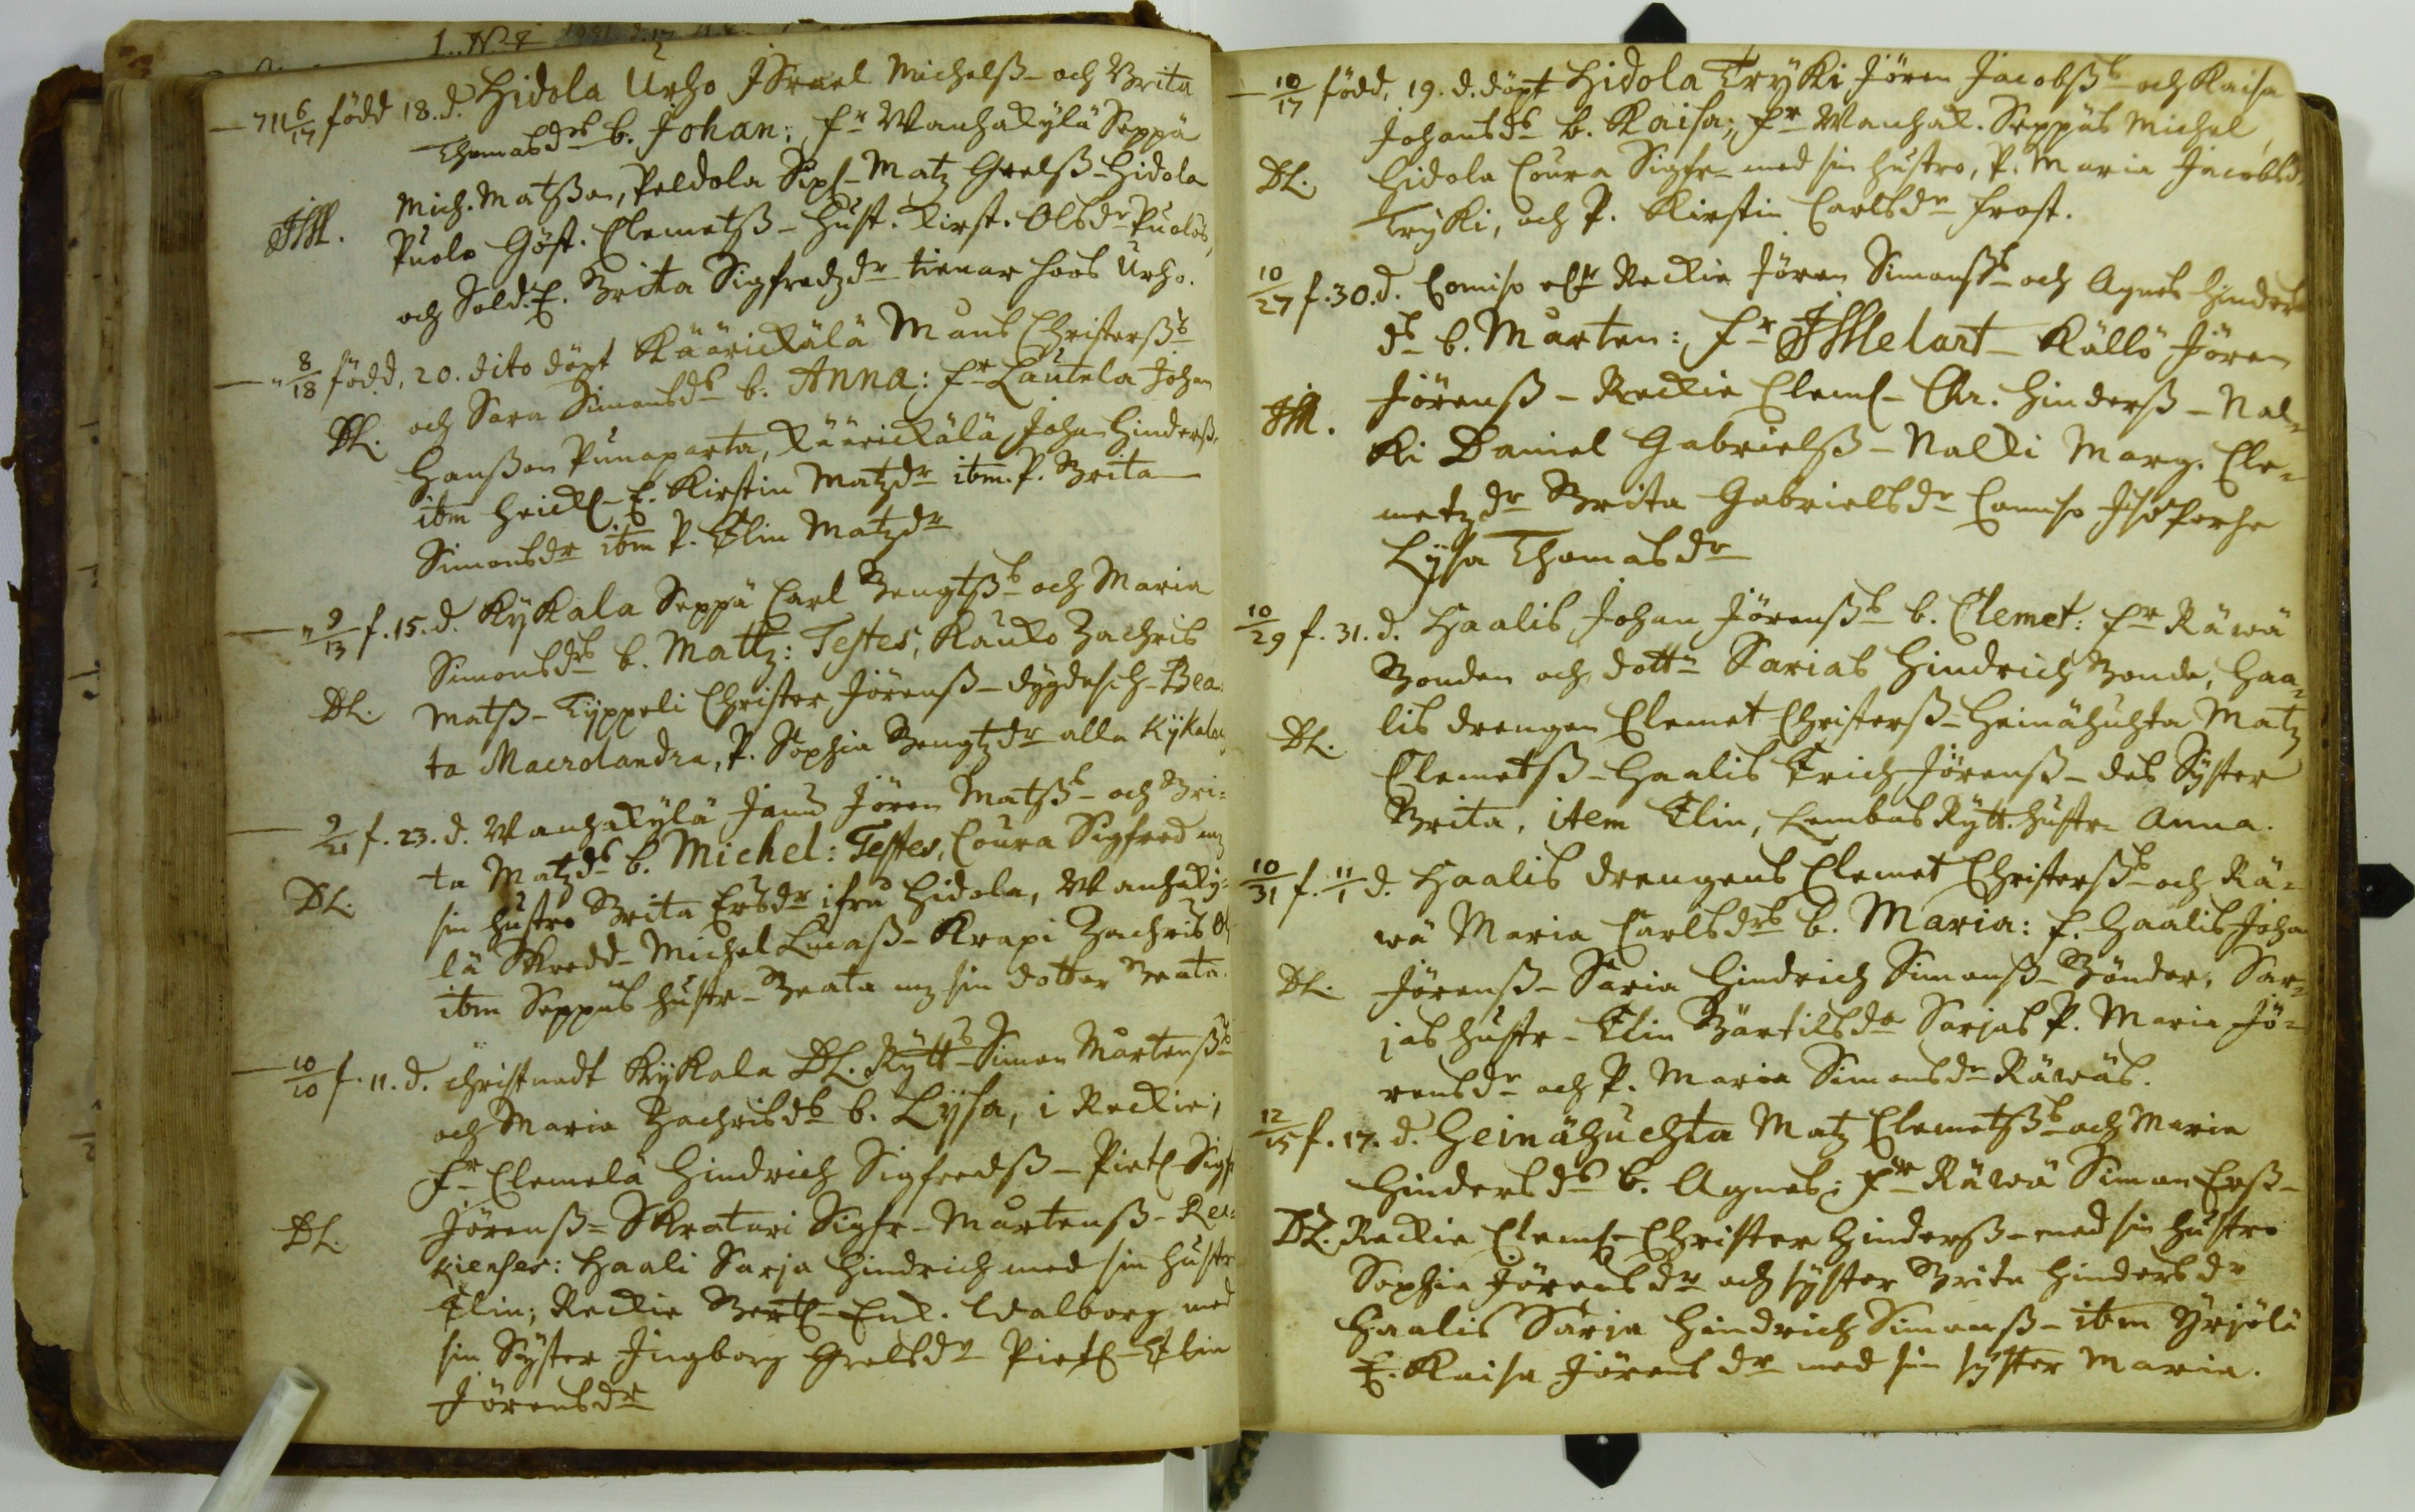 711 6/17 född 18. d. Hidola Urho JSrael Michelß- och Brita
Thomasdrs b. Johan: fr Wanhakylä Seppä
Mich. Matßon, Peldola Matz Grelß- Hidola
JM.
Puolo Göst. Clemetß- Hust. Kirst. Olsdr Puolos,
och Sold. E. Brita Sigfredzdr tienar hoos Urho.
" 8/18 född, 20. dito döpt Käärickälä Måns Christerßs
och Sara Simonsds b. Anna: fr Lautela Johan
DL.
Hanßon Punaparta, Käärickälä Johan Hinderß
ibm E. Kirstin Matzdr ibm. P. Brita
Simonsdr ibm P. Elin Matzdr
" 9/13 f. 15. d. KyKala Seppä Carl Bengtßs och Maria
Simonsdrs b. Mattz: Testes, Kauko Zachris
DL.
Matß- Typpeli Christer Jörenß- Bea-
ta Macrolandra, P. Sophia Bengtzdr alla Kykala
9/21 f. 23. d. Wanhakylä Jöran Matßs och Bri-
ta Matzds b. Michel: Testes, Coura Sigfred m
DL.
sin hustro Brita Ersdr ifrå Hidola, Wanhaky-
lä Skredd- Michel Lucaß- Krapi Zachris
ibm Seppäs hustr- Beata m sin dotter Beata.
10/10 f. 11. d. christnadt KyKala DL. Rytt- Simon Mårtenßs
och Maria Zachrisds b. Lysa, i Reckie;
fr Clemelä Hindrich Sigfredß-
DL.
Jörenß- Skratari Sigfr- Mårtenß- Rec-
kienses: Haali Sarja Hindrich med sin hustr
Elin; Reckie Enk. Walborg med
sin Syster Ingborg Grelsdr Elin
Jörensdr
10/17 född, 19. d. döpt Hidola TryKi Jören Jacobßs och Kaisa
Johansds b. Kaisa; fr Wanhak. Seppäs Michel,
DL.
Hidola Coura Sigfr- med sin hustro, P. Maria Jacobsd
TryKi, och P. Kirstin Carlsdr frost.
10/27 f. 30. d. Comiso Reckie Jören Simonßs och Agnes Hinders
ds b. Mårten: fr JMelart- Källö Jören
JM.
Jörenß- Reckie Chr. Hinderß- Nal-
Ki Daniel Gabrielß- Nalki Marg. Cle-
metzdr Brita Gabrielsdr Comiso
Lysa Thomasdr
10/29 f. 31. d. Haalis Johan Jörenßs b. Clemet: fr Räwä
Bonden och dottr Sarias Hindrich Bonde, Haa-
DL.
lis drengen Clemet Christerß- Heinähuhta Matz
Clemetß- Haalis Erich Jörenß- des Syster
Brita, item Elin, Lembas Rytt. hustr- Anna.
10/31 f. 11/1 d. Haalis drengens Clemet Christerßs och Rä-
wä Maria Carlsdrs b. Maria: f. Haalis Johan
DL.
Jörenß- Saria Hindrich Simonß- Bönder, Sar-
jas hustr- Elin Bärtilsdr Sarjas P. Maria Jö-
rensdr och P. Maria Simonsdr Räwäs.
12/15 f. 17. d. Heinähuchta Matz Clemetßs och Maria
Hindersds b. Agnes: fr Räwä Simon Erß-
DL.
Reckie Christer Hinderß- med sin hustro
Sophia Jörensdr och syster Brita Hindersdr
Haalis Sarja Hindrich Simonß- ibm Yrjölä
E. Kaisa Jörensdr med sin syster Maria.